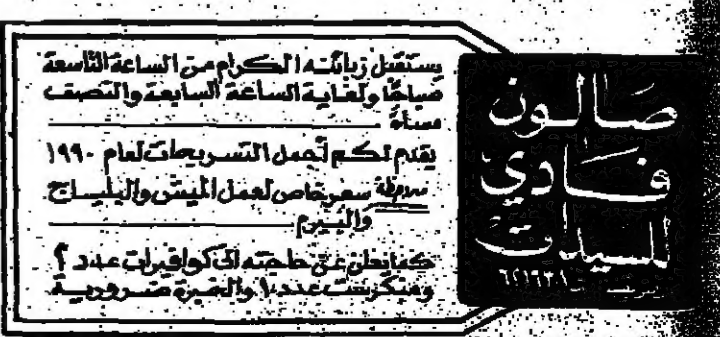 صالون
فادي
للسيدات
يستقبل زبائنه الكرام من الساعة التاسعة
صباحًا ولغاية الساعة السابعة والنصف
مساءً
يقدم لكم أجمل التسريحات لعام ١٩٩٠
ملاحظة سعر خاص لعمل الميش والبلياج
والبيرم
كما يعلن عن حاجته الى كوافيرات عدد ٢
وميكرست عدد ١ والخبرة ضرورية